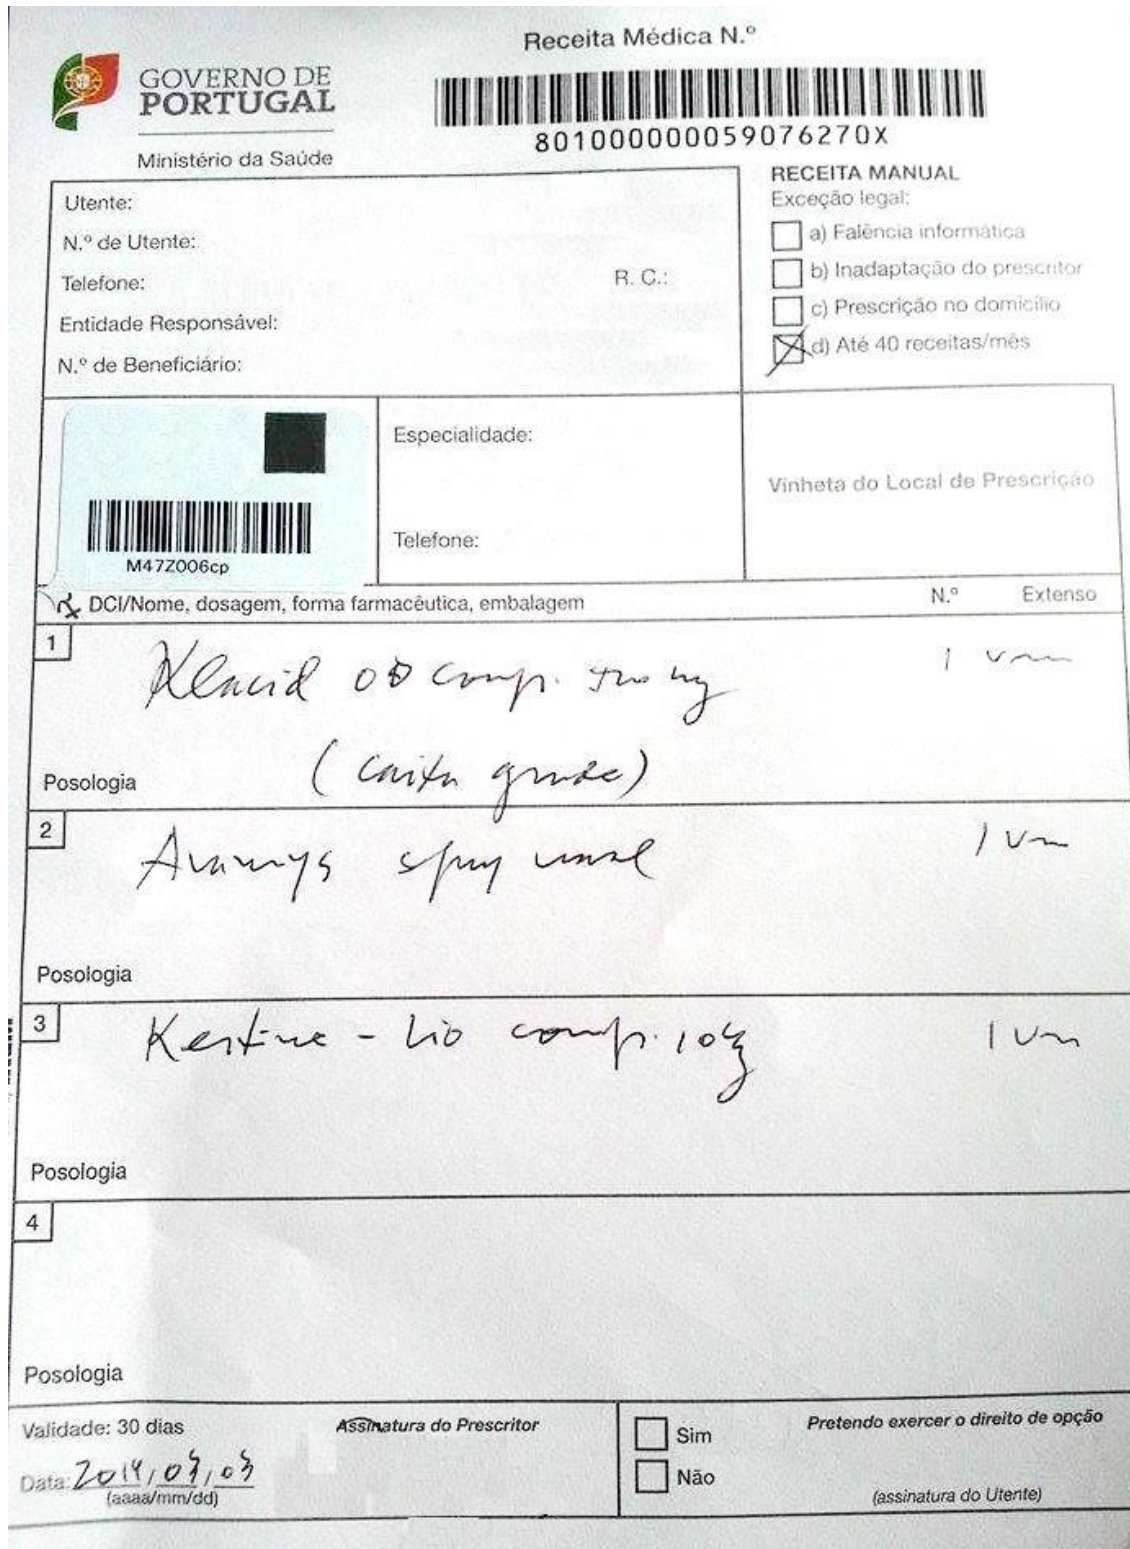 Receita Médica N.º
GOVERNO DE
PORTUGAL
Ministério da Saúde
801000000059076270X
RECEITA MANUAL
Exceção legal:
a) Falência informática
b) Inadaptação do prescritor
c) Prescrição no domicílio
d) Até 40 receitas/mês
Utente:
N.º de Utente:
Telefone: R. C.:
Entidade Responsável:
N.º de Beneficiário:
M47Z006cp
Especialidade:
Telefone:
Vinheta do Local de Prescrição
DCI/Nome, dosagem, forma farmacêutica, embalagem N.º Extenso
1
Klacid OD comp. 500 mg 1 um
(caixa grande)
Posologia
2
Avamys spray nasal 1 um
Posologia
3
Kestine - Lio comp. 1 um
Posologia
4
Posologia
Validade: 30 dias
Data: 2014/03/03
(aaaa/mm/dd)
Assinatura do Prescritor
Sim
Não
Pretendo exercer o direito de opção
(assinatura do Utente)